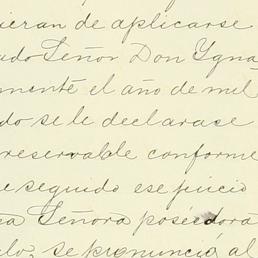 ieran de aplicarse
ado Señor Don Ygna
mente el año de mil
do se le declarase
reservable conforme
e seguido ese juicio
na Señora poseedora
lo, se pronunció al